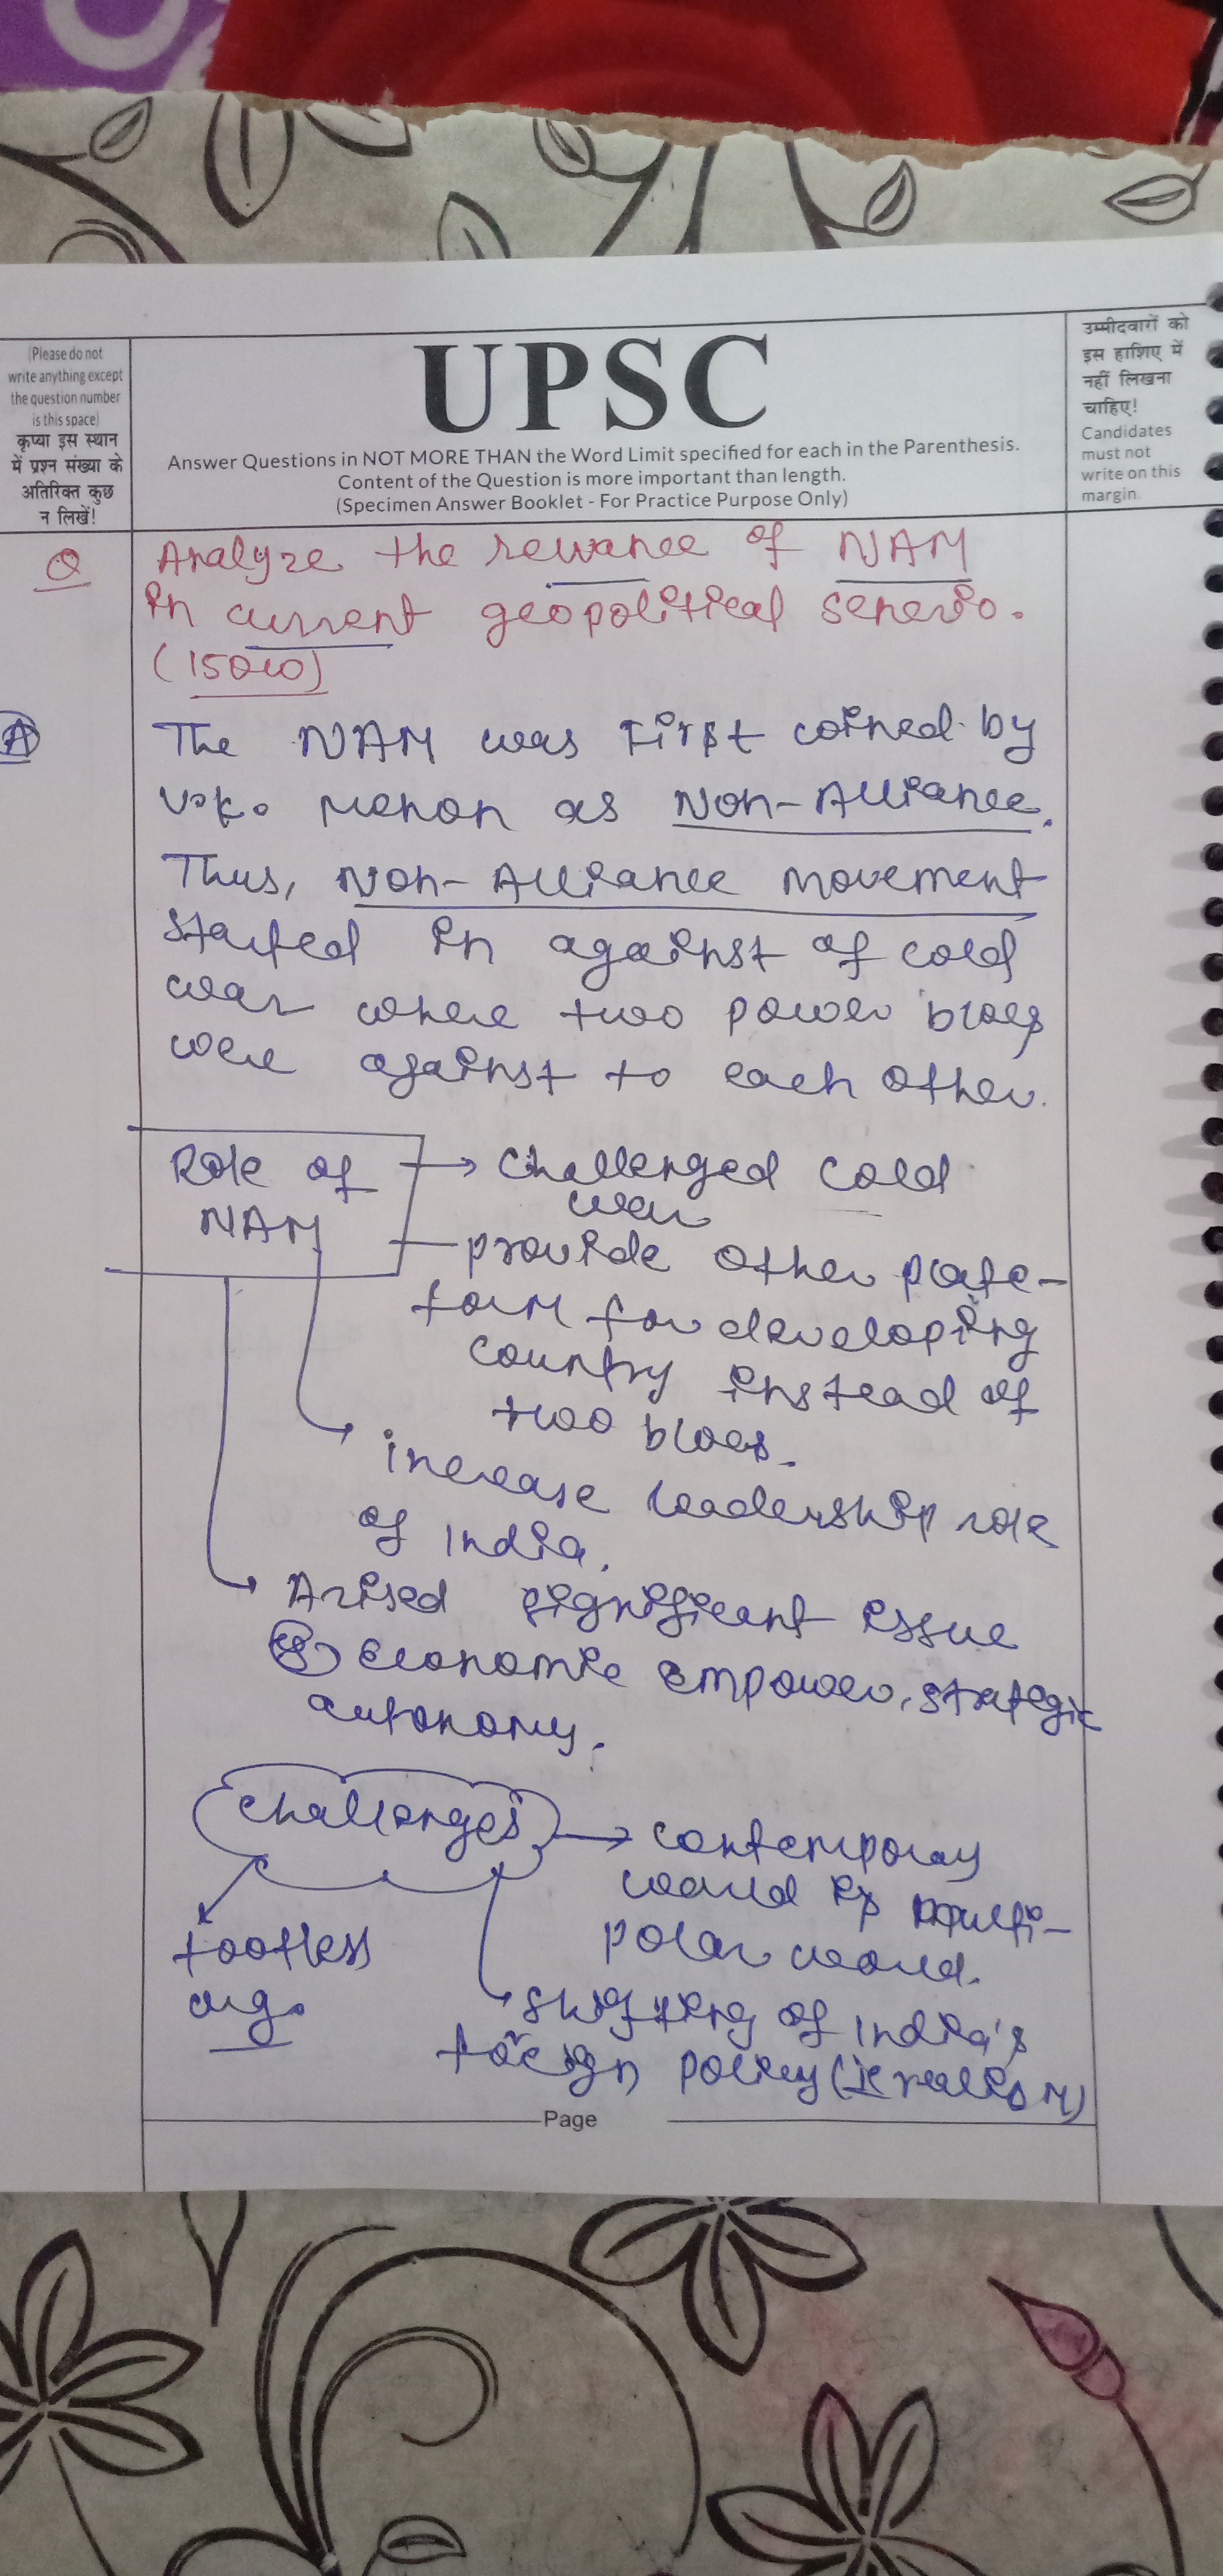 (Please do not
write anything except
the question number
is this space)
कृप्या इस स्थान
में प्रश्न संख्या के
अतिरिक्त कुछ
न लिखें!
UPSC
Answer Questions in NOT MORE THAN the Word Limit specified for each in the Parenthesis.
Content of the Question is more important than length.
(Specimen Answer Booklet - For Practice Purpose Only)
उम्मीदवारों को
इस हाशिए में
नहीं लिखना
चाहिए!
Candidates
must not
write on this
margin.
Q
Analyze the relevance of NAM
in current geopolitical scenerio.
(150w)
A
The NAM was First coined by
V.K. Menon as Non-Alliance.
Thus, Non-Alliance movement
started in against of cold
war where two power blocs
were against to each other.
Role of
NAM
→ Challenged cold
war
provide other plate-
form for developing
country instead of
two blocs.
increase leadership role
of India.
Arised significant issue
economic empower, strategic
autonomy.
Challenges
→ contemporary
world is multi-
polar world.
tootless
org.
shifting of India's
foreign policy (realism)
Page